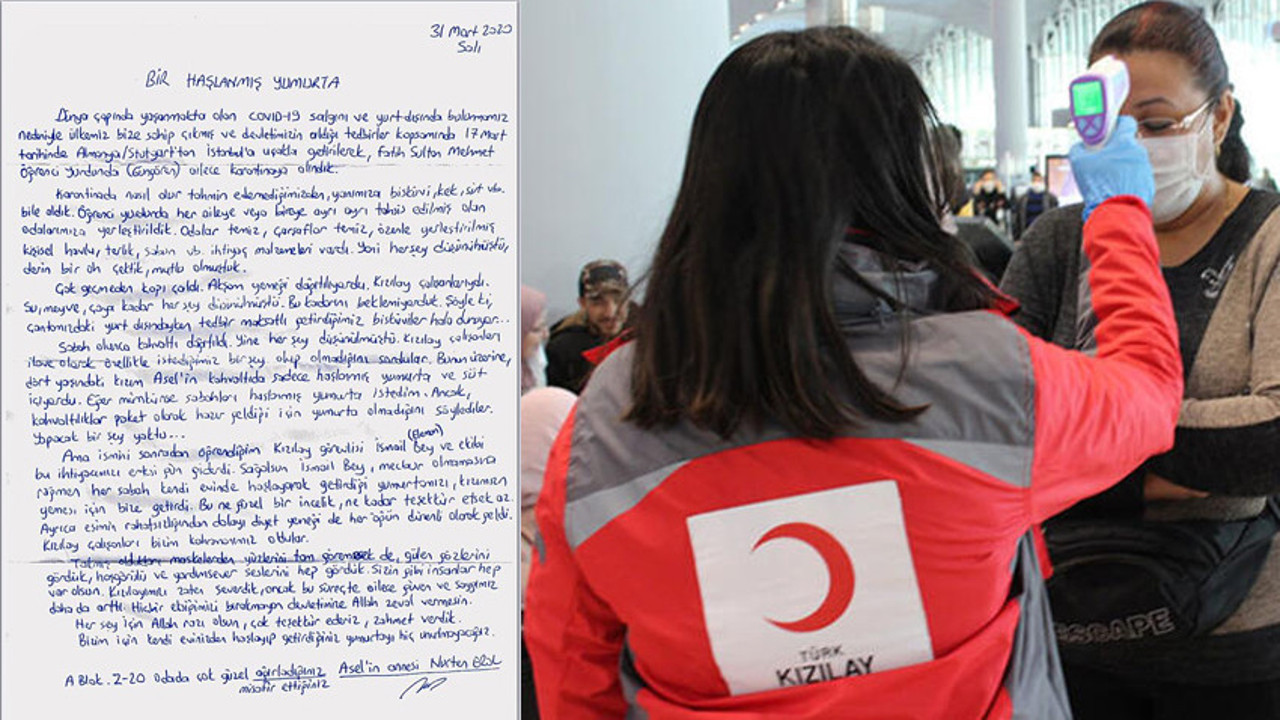 31 Mart 2020
Salı
BİR HAŞLANMIŞ YUMURTA
Dünya çapında yaşanmakta olan COVID-19 salgını ve yurt dışında bulunmamız
nedeniyle ülkemiz bize sahip çıkmış ve devletimizin aldığı tedbirler kapsamında 17 Mart
tarihinde Almanya/Stutgart'tan İstanbul'a uçakla getirilerek, Fatih Sultan Mehmet
Öğrenci Yurdunda (Güngören) ailece karantinaya alındık.
Karantinada nasıl olur tahmin edemediğimizden, yanımıza bisküvi, kek, süt vb.
bile aldık. Öğrenci yurdunda her aileye veya bireye ayrı ayrı tahsis edilmiş olan
odalarımıza yerleştirildik. Odalar temiz, çarşaflar temiz, özenle yerleştirilmiş
kişisel havlu, terlik, sabun vb. ihtiyaç malzemeleri vardı. Yani herşey düşünülmüştü,
derin bir oh çektik, mutlu olmuştuk.
Çok geçmeden kapı çaldı. Akşam yemeği dağıtılıyordu. Kızılay çalışanlarıydı.
Su, meyve, çaya kadar her şey düşünülmüştü. Bu kadarını beklemiyorduk. Şöyle ki,
çantamızdaki yurt dışındayken tedbir maksatlı getirdiğimiz bisküviler hala duruyor...
Sabah olunca kahvaltı dağıtıldı. Yine her şey düşünülmüştü. Kızılay çalışanları
ilave olarak özellikle istediğimiz bir şey olup olmadığını sordular. Bunun üzerine,
dört yaşındaki kızım Asel'in kahvaltıda sadece haşlanmış yumurta ve süt
içiyordu. Eğer mümkünse sabahları haşlanmış yumurta istedim. Ancak,
kahvaltılıklar paket olarak hazır geldiği için yumurta olmadığını söylediler.
Yapacak bir şey yoktu...
Ama ismini sonradan öğrendiğim Kızılay görevlisi İsmail Bey ve ekibi
bu ihtiyacımızı ertesi gün giderdi. Sağolsun İsmail Bey, mecbur olmamasına
rağmen her sabah kendi evinde haşlayarak getirdiği yumurtamızı, kızımın
yemesi için bize getirdi. Bu ne güzel bir incelik, ne kadar teşekkür etsek az.
Ayrıca eşimin rahatsızlığından dolayı diyet yemeği de her öğün düzenli olarak geldi.
Kızılay çalışanları bizim kahramanımız oldular.
oldukları maskelerden yüzlerini tam göremesek de, gülen gözlerini
gördük, hoşgörülü ve yardımsever seslerini hep gördük. Sizin gibi insanlar hep
var olsun. Kızılayımızı zaten severdik, ancak bu süreçte ailece güven ve saygımız
daha da arttı. Hiçbir ekibimizi bırakmayan devletimize Allah zeval vermesin.
Her şey için Allah razı olsun, çok teşekkür ederiz, zahmet verdik.
Bizim için kendi evinizden haşlayıp getirdiğiniz yumurtayı hiç unutmayacağız.
A Blok. 2-20 Odada çok güzel ağırladığınız Asel'in annesi Nurten
misafir ettiğiniz
TÜRK
KIZILAY
ESCAPE